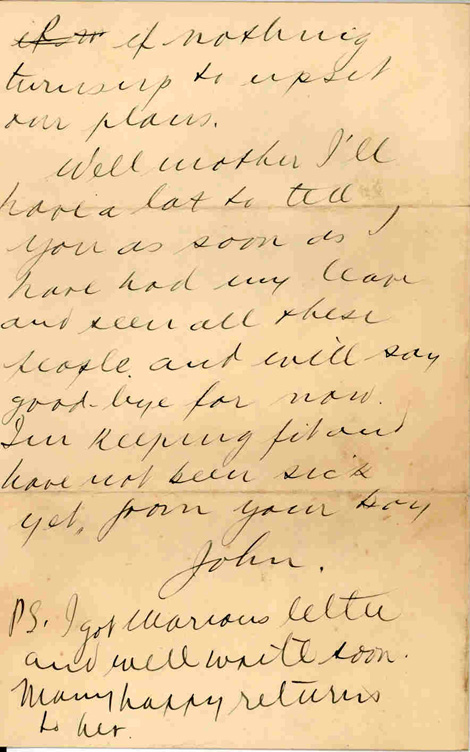 if nothing
turnsup to upset
our plans.
Well mother I'll
have a lot to tell
you as soon as I
have had my leave
and seen all these
people and will say
good-bye for now.
Im keeping fit and
have not been sick
yet, from your boy
John.
PS. I got Marions letter
and will write soon.
Many happy returns
to her.